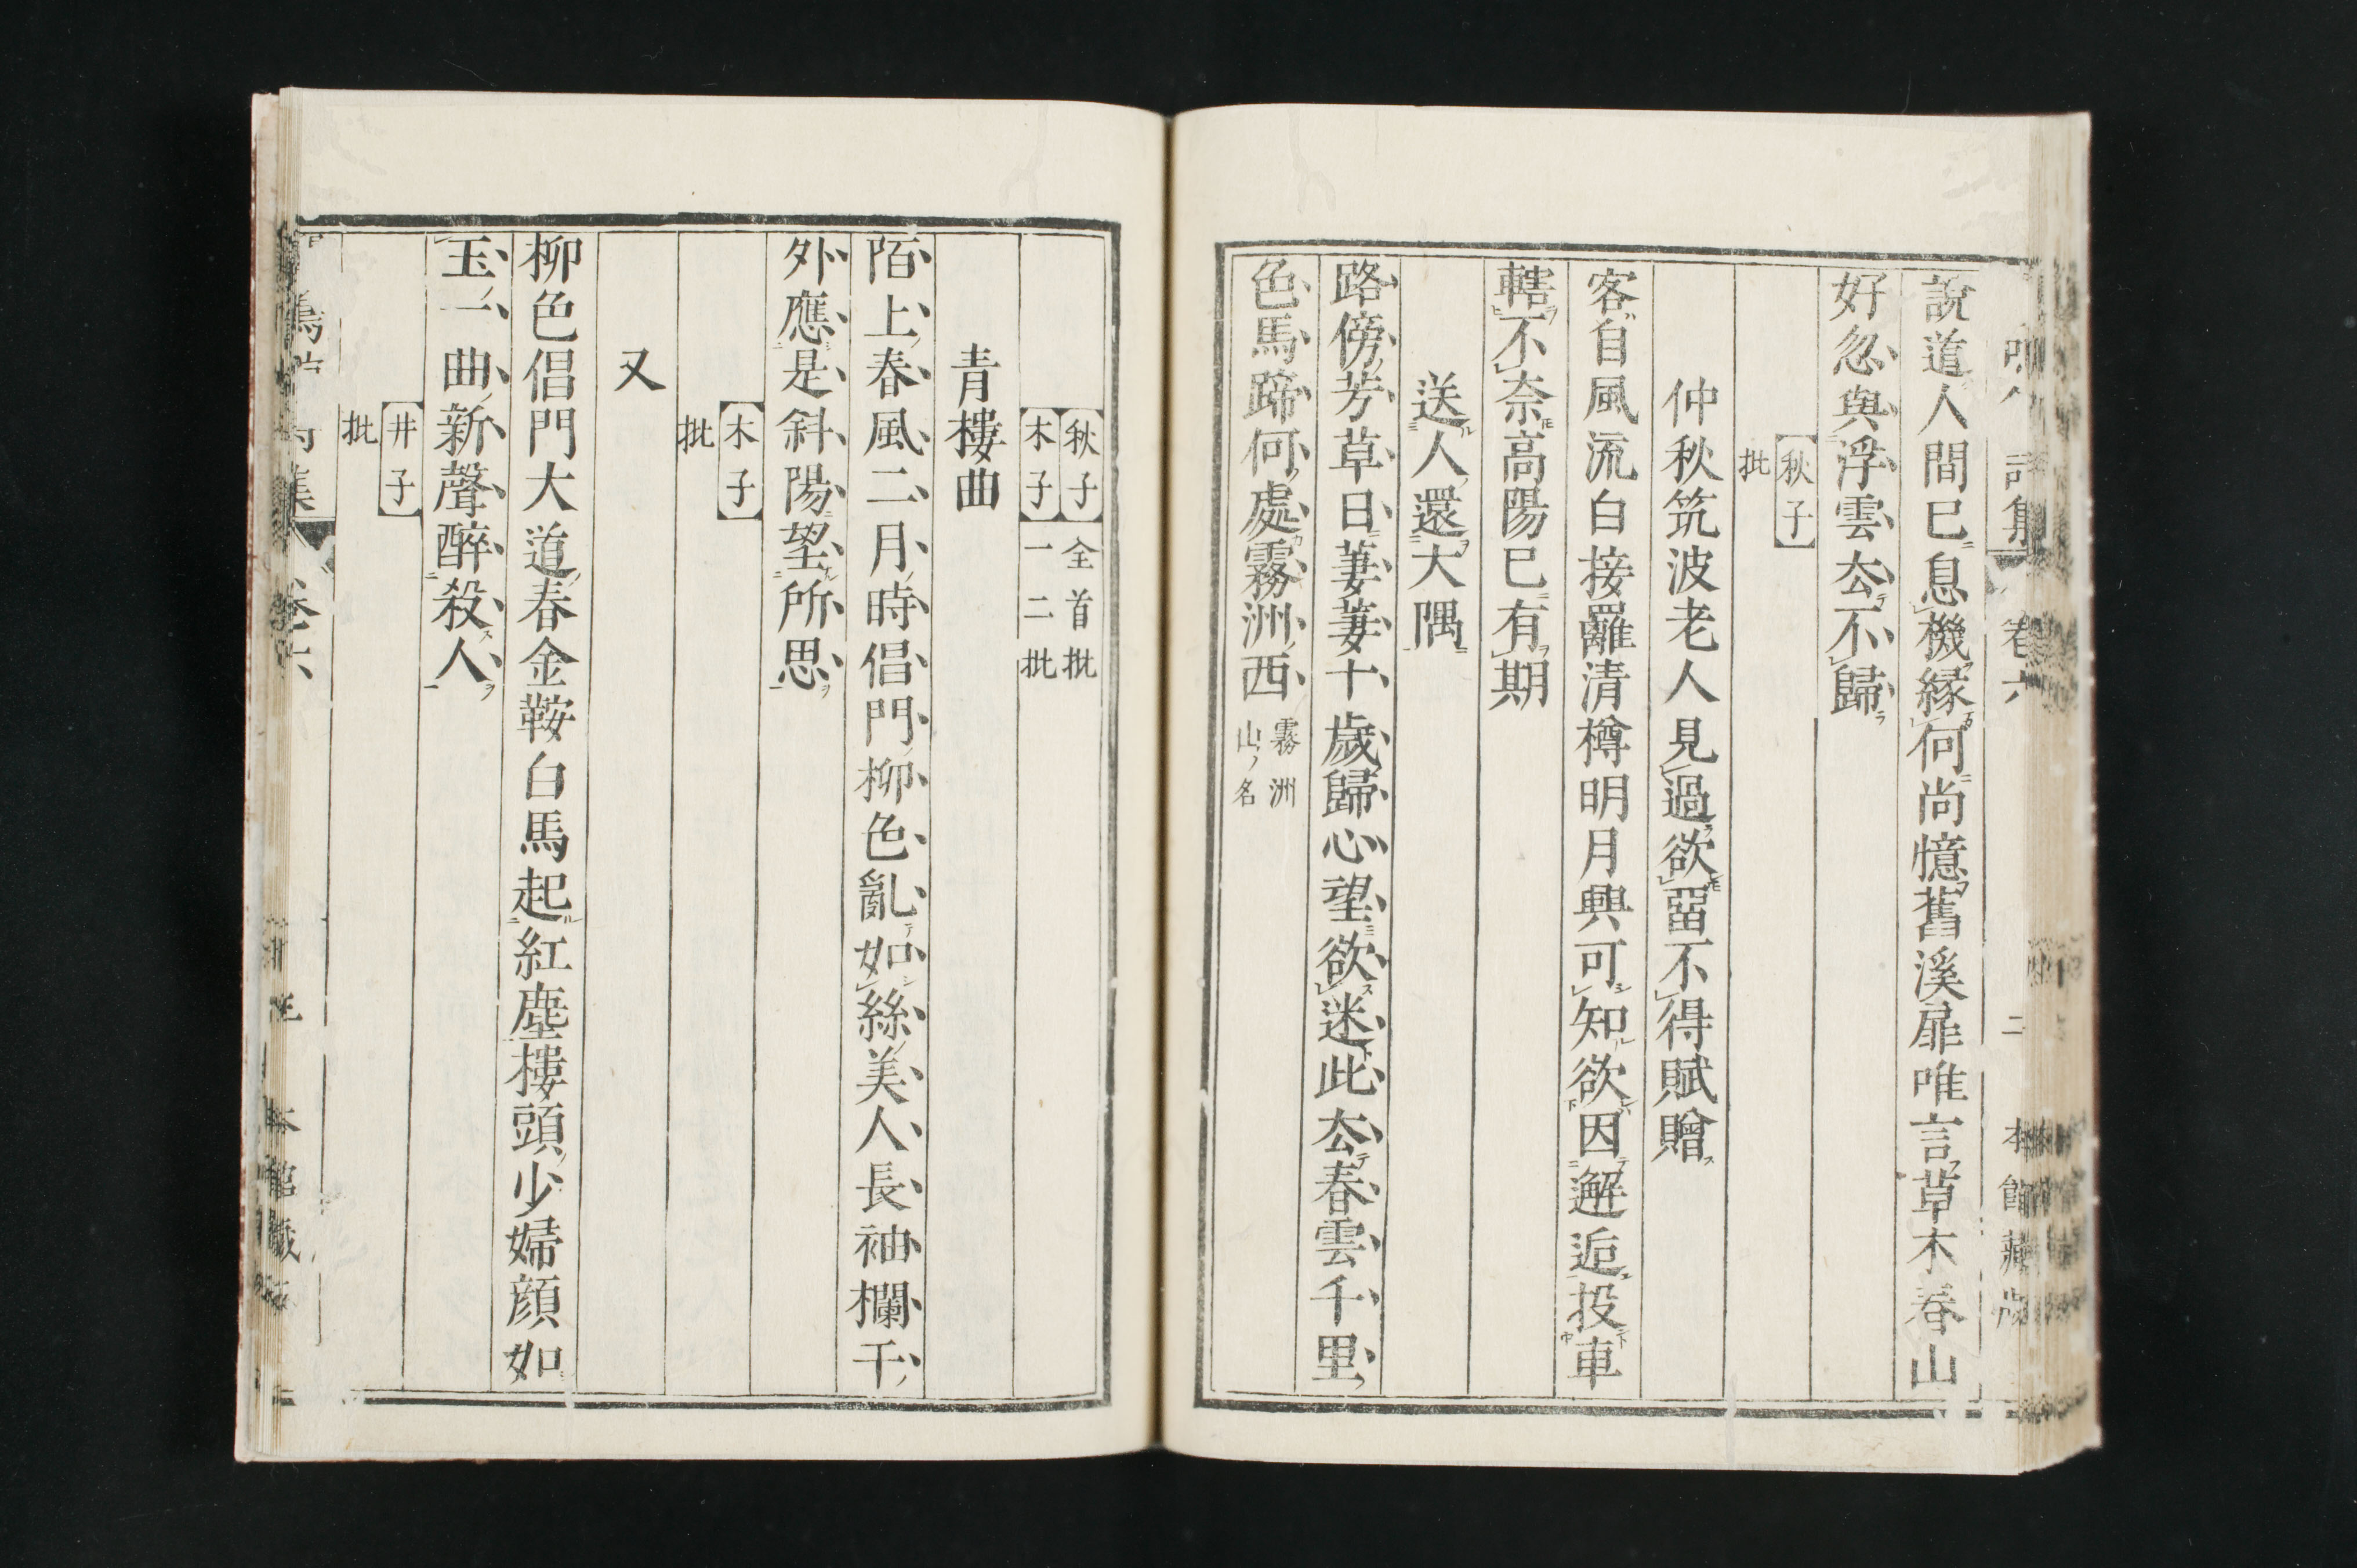 說道人間已息機緣何尚憶舊溪扉唯言草木春山
好忽與浮雲厺不歸
【秋子】
批
仲秋筑波老人見過欲畱不得賦贈
客自風流白接羅清樽明月興可知欲因邂逅投車
轄不奈高陽已有期
送人還大隅
路傍芳草日萋萋十歲歸心望欲迷此厺春雲千里
色馬蹄何處霧洲西
霧洲
山ノ名
【秋子】全首批
【木子】一二批
青樓曲
陌上春風二月時倡門柳色亂如絲美人長袖欄干
外應是斜陽望所思
【木子】
批
又
柳色倡門大道春金鞍白馬起紅塵樓頭少婦顏如
玉一曲新聲醉殺人
【井子】
批